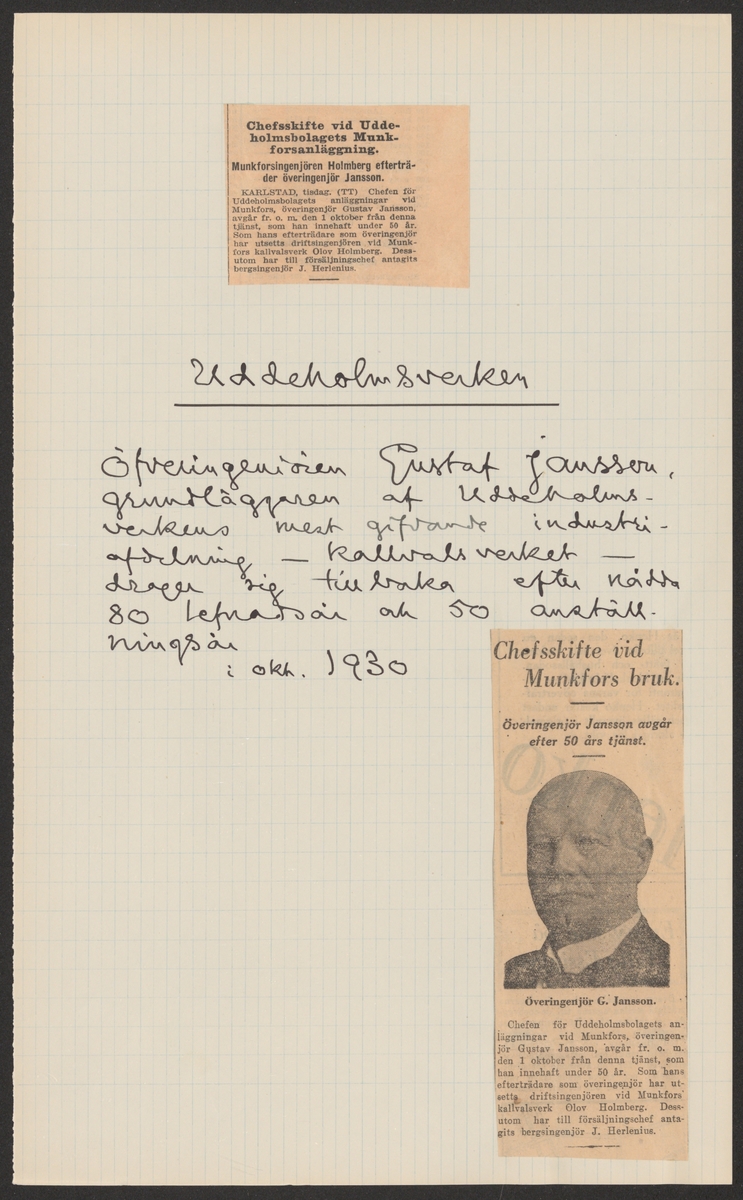 Chefsskifte vid Udde-
holmsbolagets Munk-
forsanläggning.
Munkforsingenjören Holmberg efterträ-
der överingenjör Jansson.
KARLSTAD, tisdag. (TT) Chefen för
Uddeholmsbolagets anläggningar vid
Munkfors, överingenjör Gustav Jansson,
avgår fr. o. m. den 1 oktober från denna
tjänst, som han innehaft under 50 år.
Som hans efterträdare som överingenjör
har utsetts driftsingenjören vid Munk-
fors kallvalsverk Olov Holmberg. Dess-
utom har till försäljningschef antagits
bergsingenjör J. Herlenius.
Uddeholmsverken
Öfveringeniören Gustaf Jansson,
grundläggaren af Uddeholms-
verkens mest gifvande industri-
afdelning — Kallvalsverket —
drager sig tillbaka efter nådda
80 lefnadsår och 50 anställ-
ningsår
i okt. 1930
Chefsskifte vid
Munkfors bruk.
Överingenjör Jansson avgår
efter 50 års tjänst.
Överingenjör G. Jansson.
Chefen för Uddeholmsbolagets an-
läggningar vid Munkfors, överingen-
jör Gustav Jansson, avgår fr. o. m.
den 1 oktober från denna tjänst, som
han innehaft under 50 år. Som hans
efterträdare som överingenjör har ut-
setts driftsingenjören vid Munkfors
kallvalsverk Olov Holmberg. Dess-
utom har till försäljningschef anta-
gits bergsingenjör J. Herlenius.